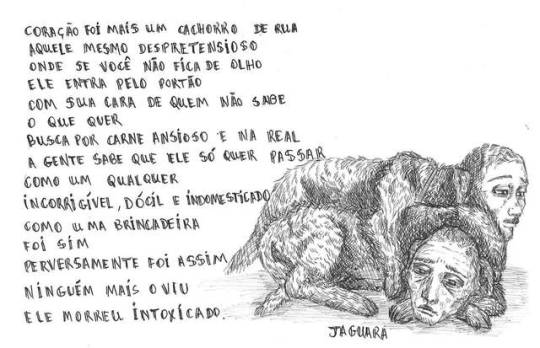 CORAÇÃO FOI MAIS UM CACHORRO DE RUA
AQUELE MESMO DESPRETENSIOSO
ONDE SE VOCÊ NÃO FICA DE OLHO
ELE ENTRA PELO PORTÃO
COM SUA CARA DE QUEM NÃO SABE
O QUE QUER
BUSCA POR CARNE ANSIOSO E NA REAL
A GENTE SABE QUE ELE SÓ QUER PASSAR
COMO UM QUALQUER
INCORRIGÍVEL, DÓCIL E INDOMESTICADO
COMO UMA BRINCADEIRA
FOI SIM
PERVERSAMENTE FOI ASSIM
NINGUÉM MAIS O VIU
ELE MORREU INTOXICADO.
JAGUARA